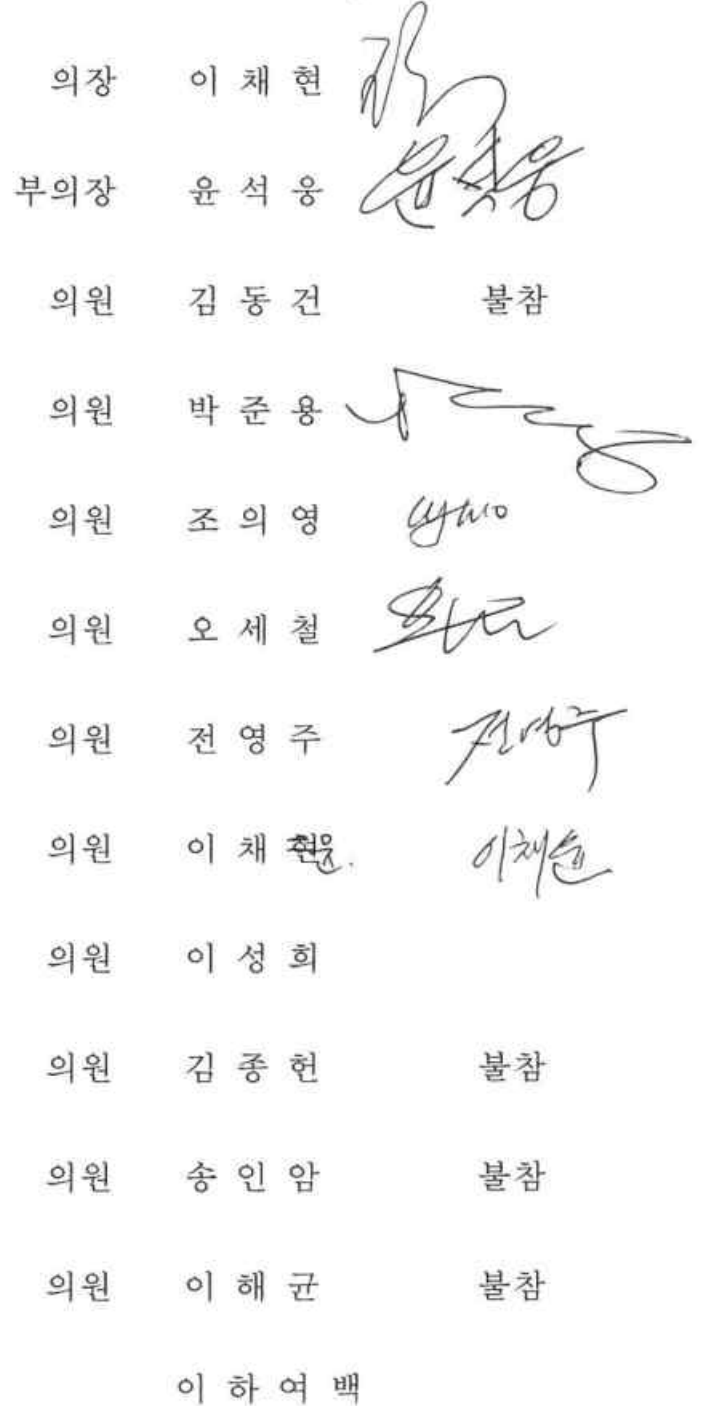 의장 이 채 현
부의장 윤 석 웅 윤석웅
의원 김 동 건 불참
의원 박 준 용
의원 조 의 영
의원 오 세 철
의원 전 영 주 전영주
의원 이 채 윤. 이채윤
의원 이 성 희
의원 김 종 헌 불참
의원 송 인 암 불참
의원 이 해 균 불참
이 하 여 백